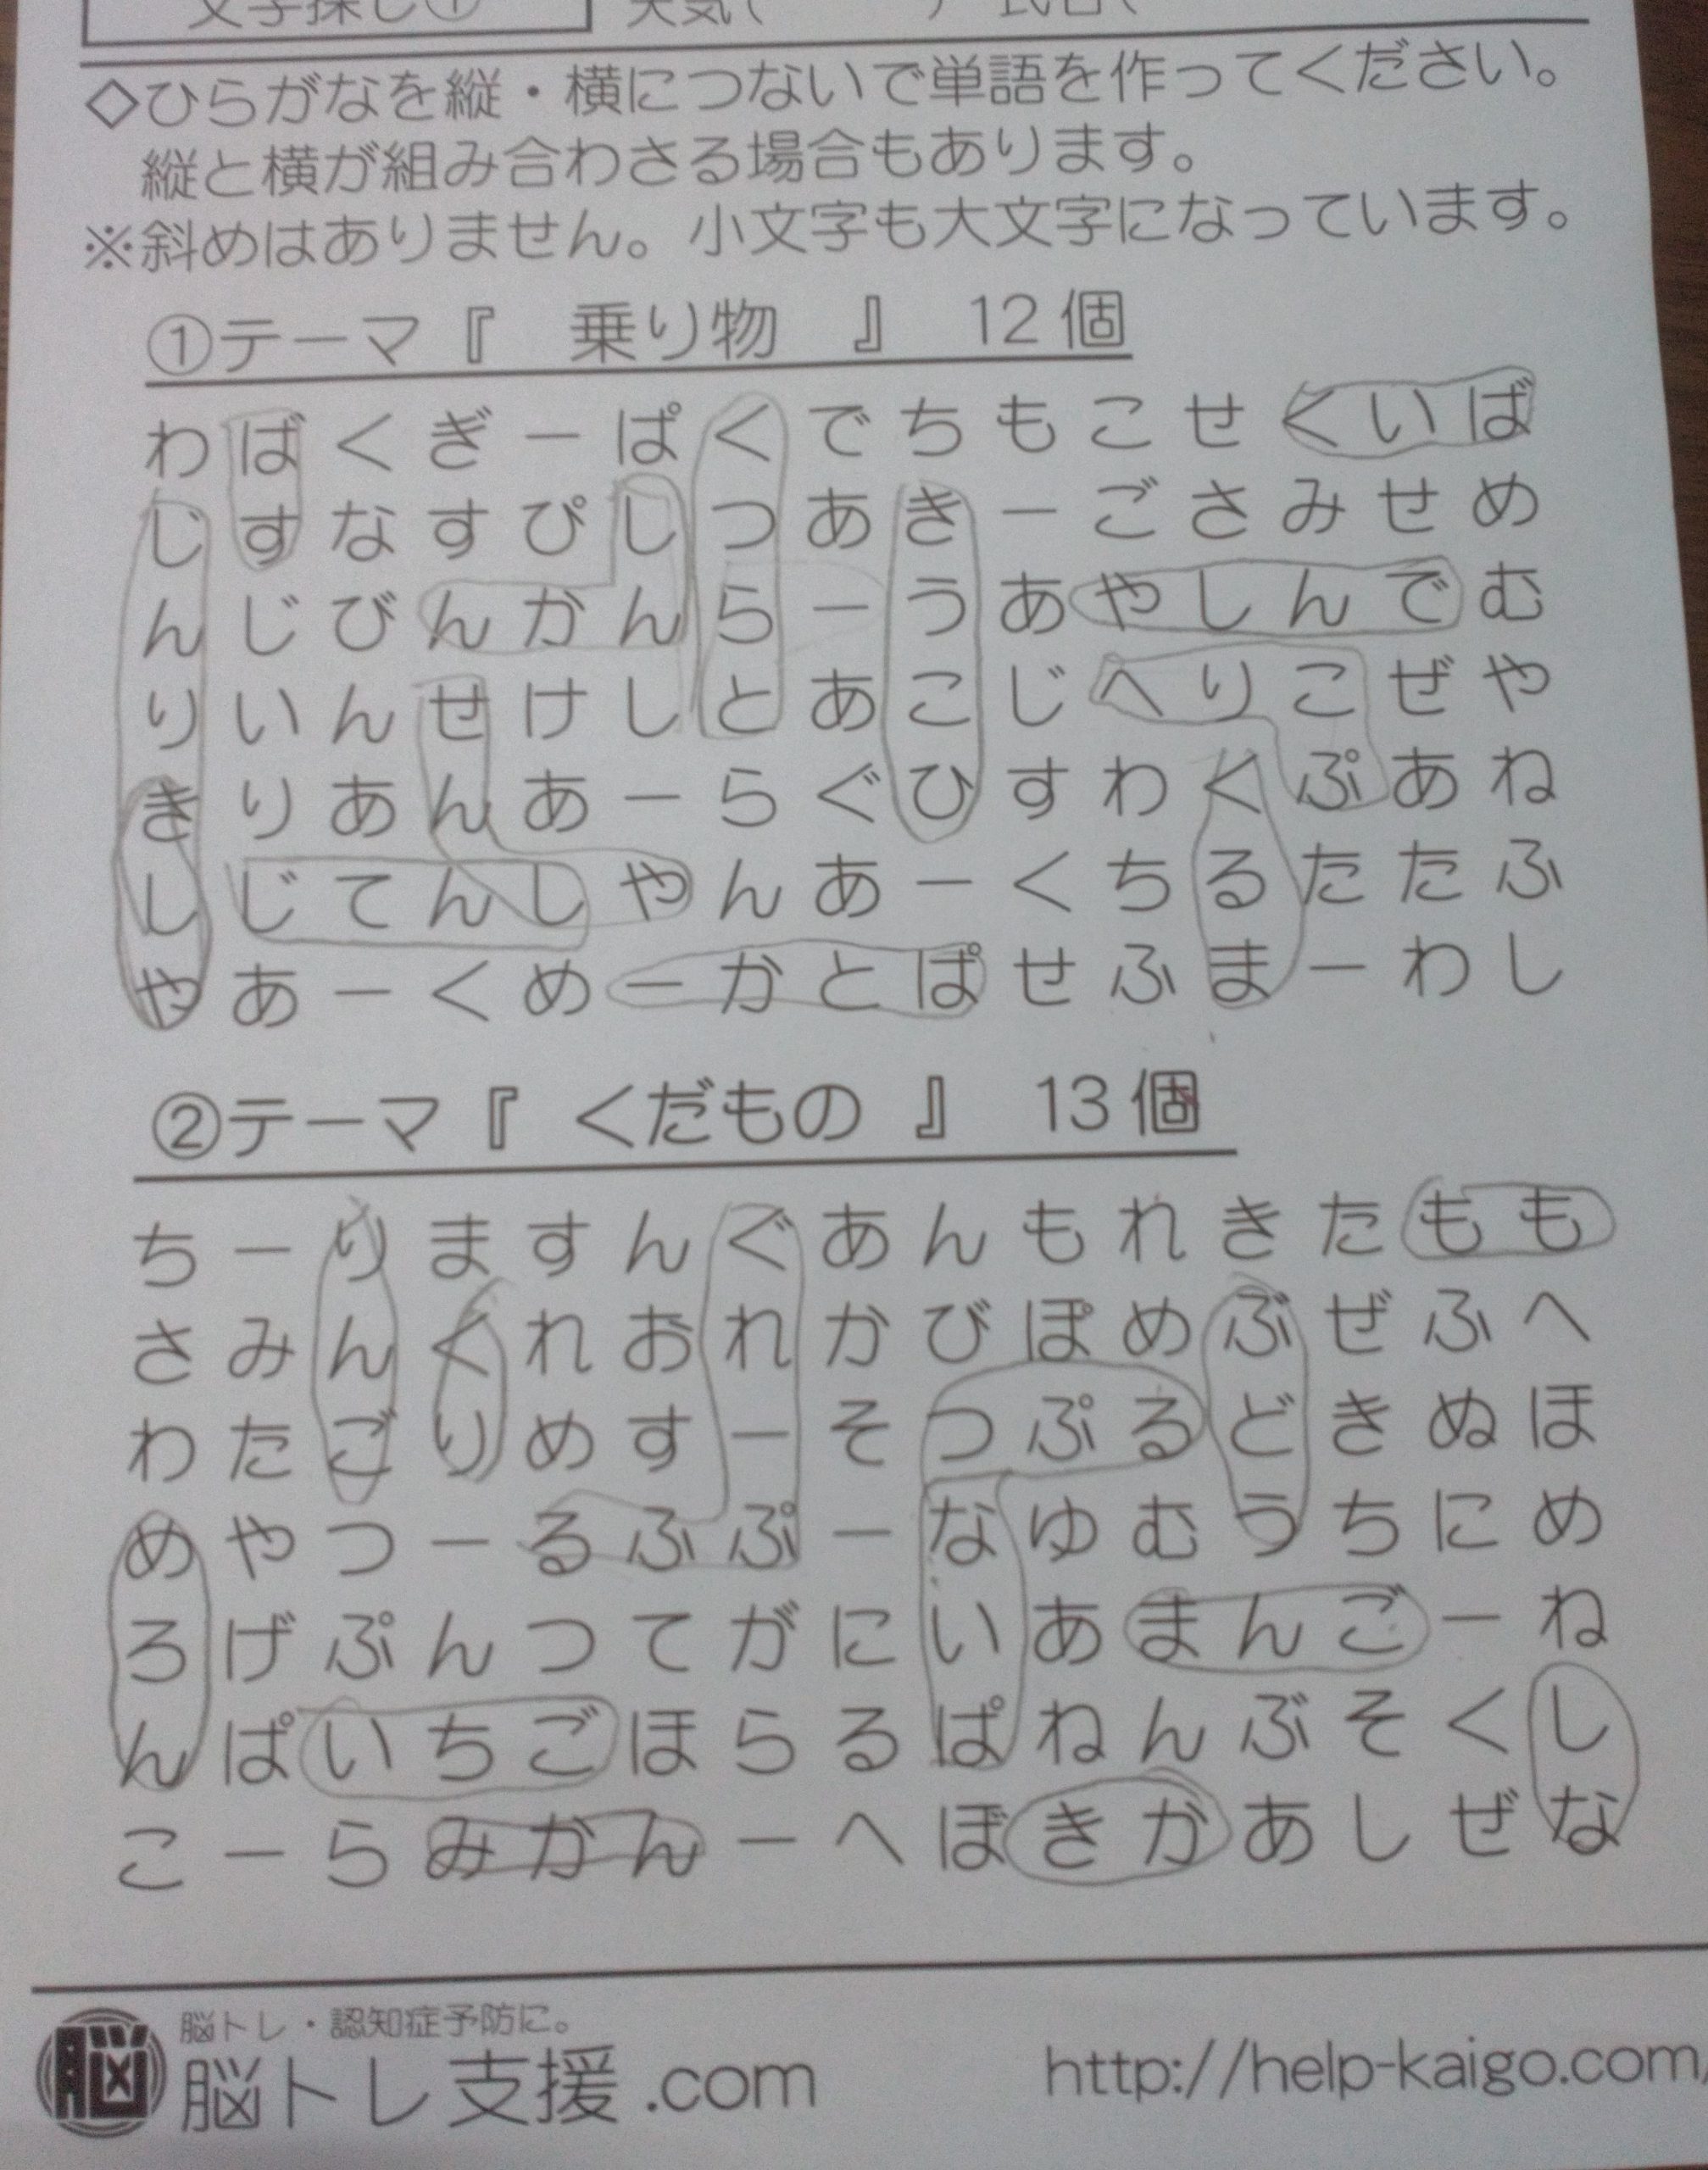 文字探し① 天気( ) 氏名(
◇ひらがなを縦・横につないで単語を作ってください。
縦と横が組み合わさる場合もあります。
※斜めはありません。小文字も大文字になっています。
①テーマ『 乗り物 』 12個
わばくぎーぱくでちもこせくいば
じすなすぴしつあきーごさみせめ
んじびんかんらーうあやしんでむ
りいんせけしとあこじへりこぜや
きりあんあーらぐひすわくぷあね
しじてんしやんあーくちるたたふ
やあーくめーかとぱせふまーわし
②テーマ『 くだもの 』 13個
ちーりますんぐあんもれきたもも
さみんくれおれかびぽめぶぜふへ
わたごりめすーそつぷるどきぬほ
めやつーるふぷーなゆむうちにめ
ろげぷんつてがにいあまんごーね
んぱいちごほらるぱねんぶそくし
こーらみかんーへぼきかあしぜな
脳トレ・認知症予防に。
脳
脳トレ支援.com
http://help-kaigo.com/